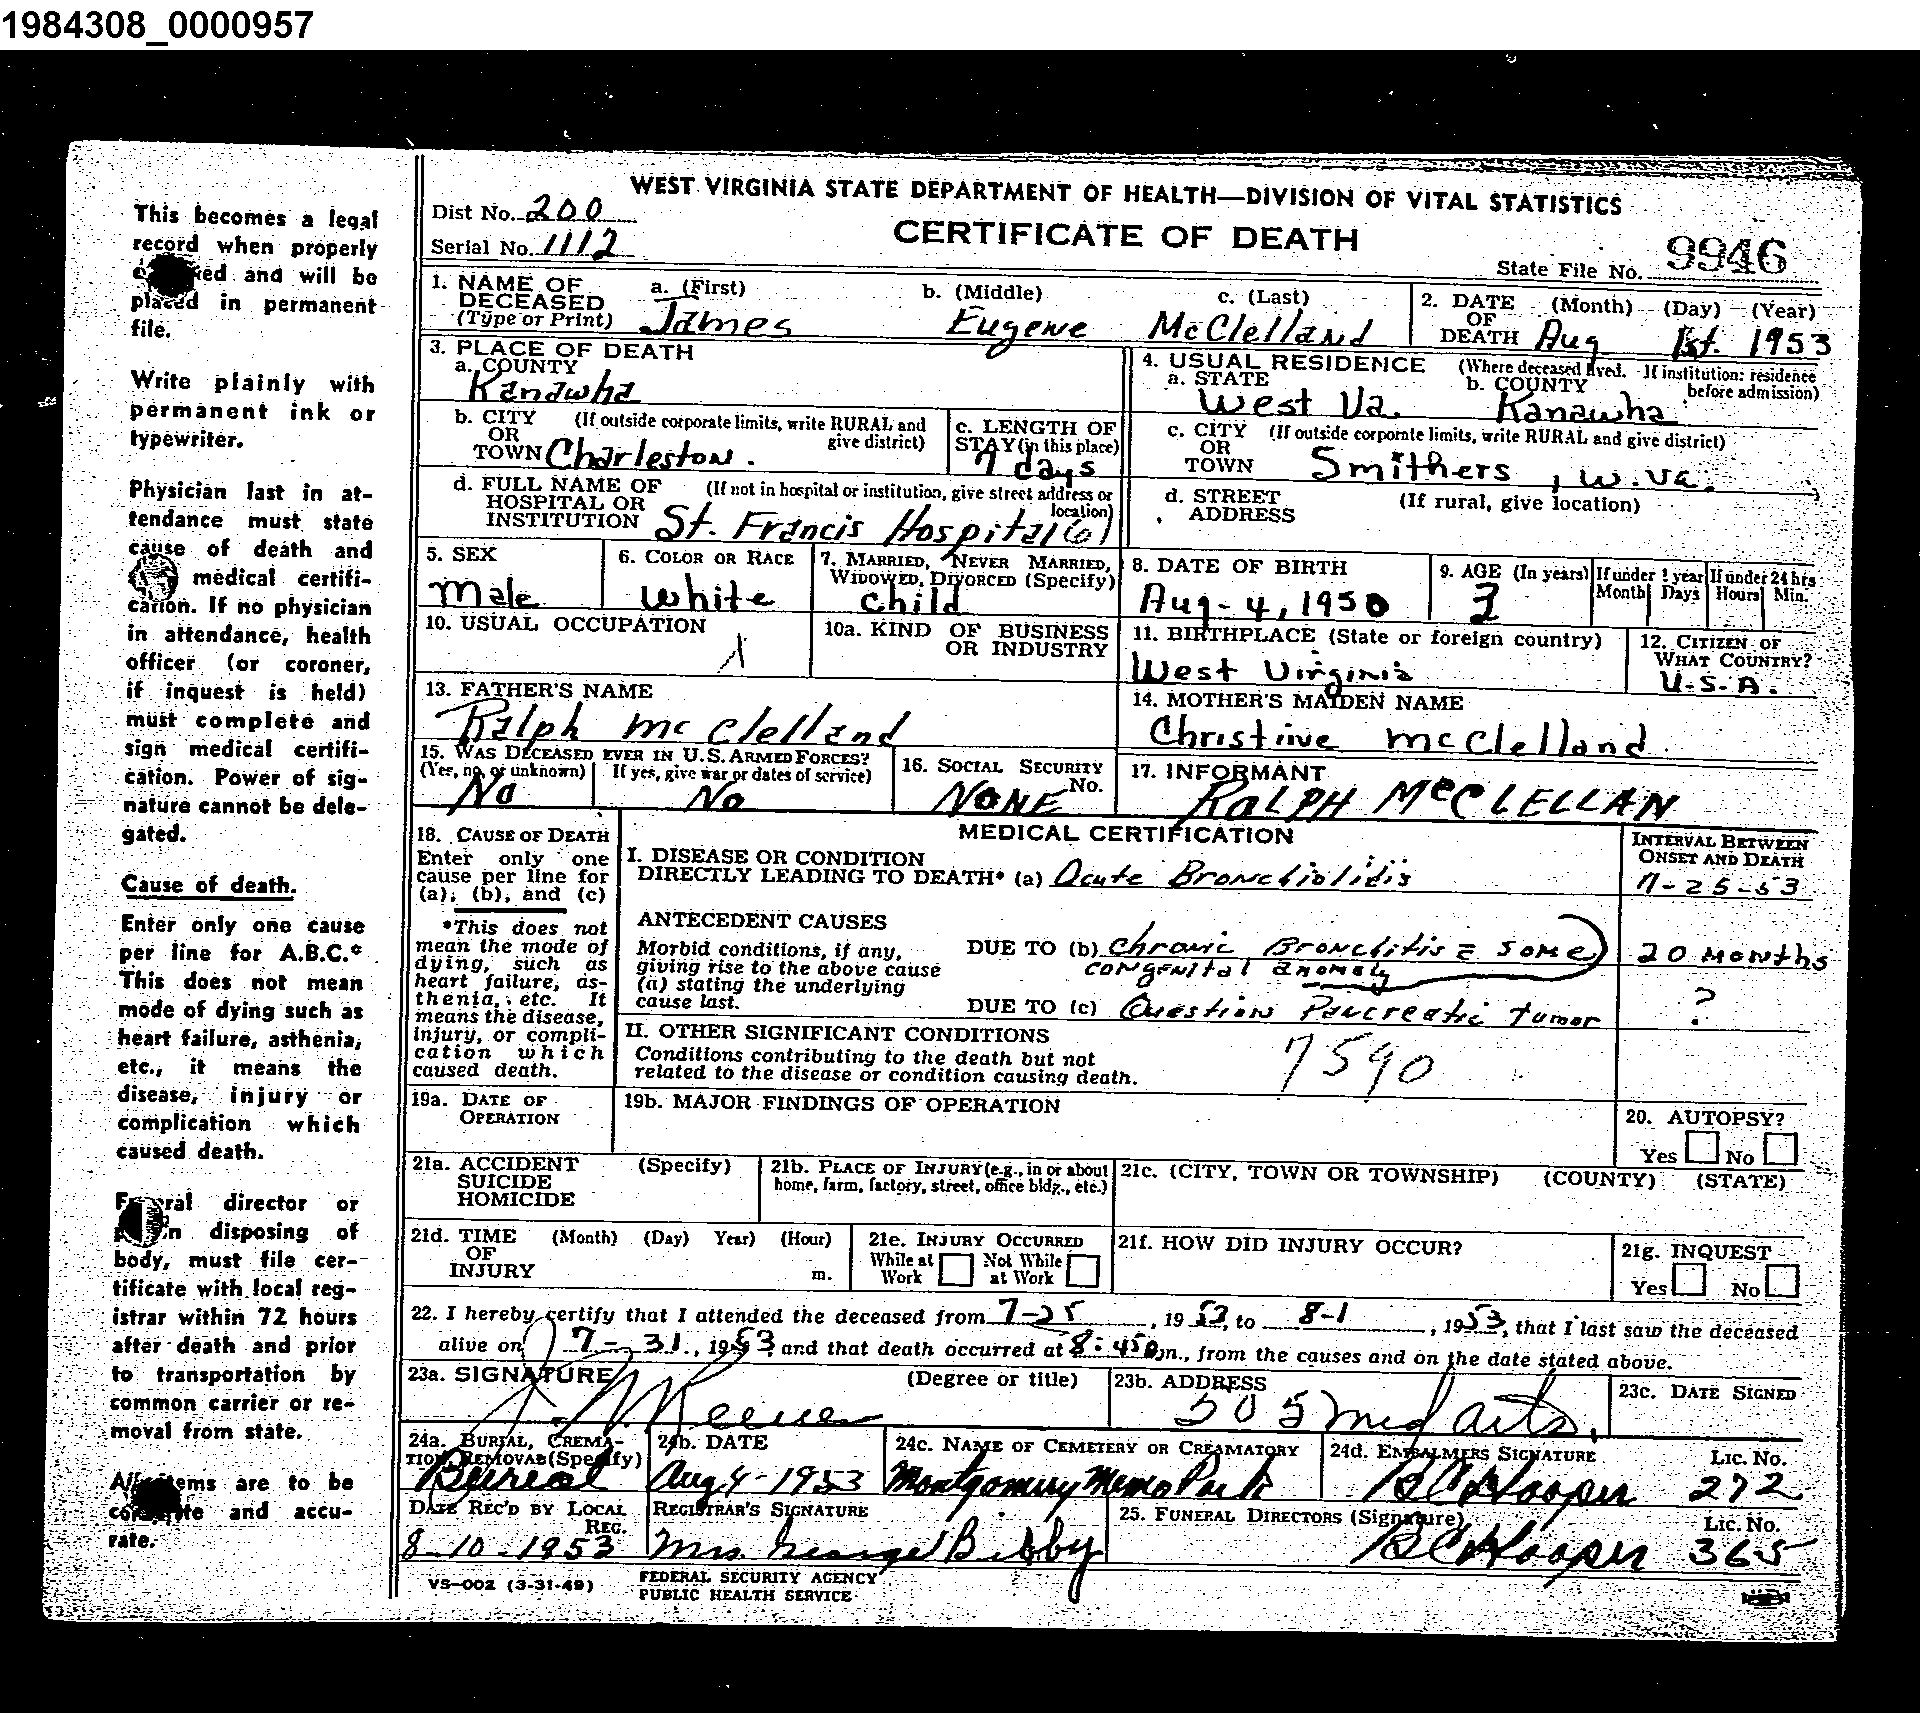 1984308_0000957
WEST VIRGINIA STATE DEPARTMENT OF HEALTH—DIVISION OF VITAL STATISTICS
CERTIFICATE OF DEATH
Dist No. 200
Serial No. 1112
State File No. 9946
This becomes a legal
record when properly
and will be
placed in permanent
file.
Write plainly with
permanent ink or
typewriter.
Physician last in at-
tendance must state
cause of death and
medical certifi-
cation. If no physician
in attendance, health
officer (or coroner,
if inquest is held)
must complete and
sign medical certifi-
cation. Power of sig-
nature cannot be dele-
gated.
Cause of death.
Enter only one cause
per line for A.B.C.*
This does not mean
mode of dying such as
heart failure, asthenia,
etc., it means the
disease, injury or
complication which
caused death.
Funeral director or
disposing of
body, must file cer-
tificate with local reg-
istrar within 72 hours
after death and prior
to transportation by
common carrier or re-
moval from state.
All items are to be
complete and accu-
rate.
1. NAME OF DECEASED (Type or Print) a. (First) James b. (Middle) Eugene c. (Last) McClelland
2. DATE OF DEATH (Month) (Day) (Year) Aug 1st. 1953
3. PLACE OF DEATH
a. COUNTY Kanawha
b. CITY OR TOWN (If outside corporate limits, write RURAL and give district) Charleston.
c. LENGTH OF STAY (in this place) 7 days
d. FULL NAME OF HOSPITAL OR INSTITUTION (If not in hospital or institution, give street address or location) St. Francis Hospital (6)
4. USUAL RESIDENCE (Where deceased lived. If institution: residence before admission)
a. STATE West Va. b. COUNTY Kanawha
c. CITY OR TOWN (If outside corporate limits, write RURAL and give district) Smithers, W. Va.
d. STREET ADDRESS (If rural, give location)
5. SEX Male
6. COLOR OR RACE White
7. MARRIED, NEVER MARRIED, WIDOWED, DIVORCED (Specify) child
8. DATE OF BIRTH Aug-4, 1950
9. AGE (In years) If under 1 year Month Days If under 24 hrs Hours Min.
10. USUAL OCCUPATION
10a. KIND OF BUSINESS OR INDUSTRY
11. BIRTHPLACE (State or foreign country) West Virginia
12. CITIZEN OF WHAT COUNTRY? U.S.A.
13. FATHER'S NAME Ralph McClelland
14. MOTHER'S MAIDEN NAME Christine McClelland
15. WAS DECEASED EVER IN U.S. ARMED FORCES? (Yes, no, or unknown) No If yes, give war or dates of service) No
16. SOCIAL SECURITY No. NONE
17. INFORMANT RALPH McCLELLAN
18. CAUSE OF DEATH
Enter only one
cause per line for
(a), (b), and (c)
*This does not
mean the mode of
dying, such as
heart failure, as-
thenia, etc. It
means the disease,
injury, or compli-
cation which
caused death.
MEDICAL CERTIFICATION
INTERVAL BETWEEN ONSET AND DEATH
I. DISEASE OR CONDITION DIRECTLY LEADING TO DEATH* (a) Acute Bronchiolitis 7-25-53
ANTECEDENT CAUSES
Morbid conditions, if any,
giving rise to the above cause
(a) stating the underlying
cause last.
DUE TO (b) Chronic Bronchitis = some congenital anomaly 20 months
DUE TO (c) Question Pancreatic tumor ?
II. OTHER SIGNIFICANT CONDITIONS
Conditions contributing to the death but not
related to the disease or condition causing death.
7590
19a. DATE OF OPERATION
19b. MAJOR FINDINGS OF OPERATION
20. AUTOPSY? Yes No
21a. ACCIDENT SUICIDE HOMICIDE (Specify)
21b. PLACE OF INJURY (e.g., in or about home, farm, factory, street, office bldg., etc.)
21c. (CITY, TOWN OR TOWNSHIP) (COUNTY) (STATE)
21d. TIME OF INJURY (Month) (Day) Year) (Hour) m.
21e. INJURY OCCURRED While at Work Not While at Work
21f. HOW DID INJURY OCCUR?
21g. INQUEST Yes No
22. I hereby certify that I attended the deceased from 7-25, 1953, to 8-1, 1953, that I last saw the deceased
alive on 7-31, 1953, and that death occurred at 8:45 m., from the causes and on the date stated above.
23a. SIGNATURE (Degree or title)
23b. ADDRESS 505 Med Arts.
23c. DATE SIGNED
24a. BURIAL, CREMATION, REMOVAL (Specify) Burial
24b. DATE Aug 4-1953
24c. NAME OF CEMETERY OR CREAMATORY Montgomery Memo Park
24d. EMBALMERS SIGNATURE BC Hooper Lic. No. 272
DATE REC'D BY LOCAL REG. 8-10-1953
REGISTRAR'S SIGNATURE Mrs. George Bibby
25. FUNERAL DIRECTORS (Signature) BC Hooper Lic. No. 365
VS-002 (3-31-49)
FEDERAL SECURITY AGENCY
PUBLIC HEALTH SERVICE